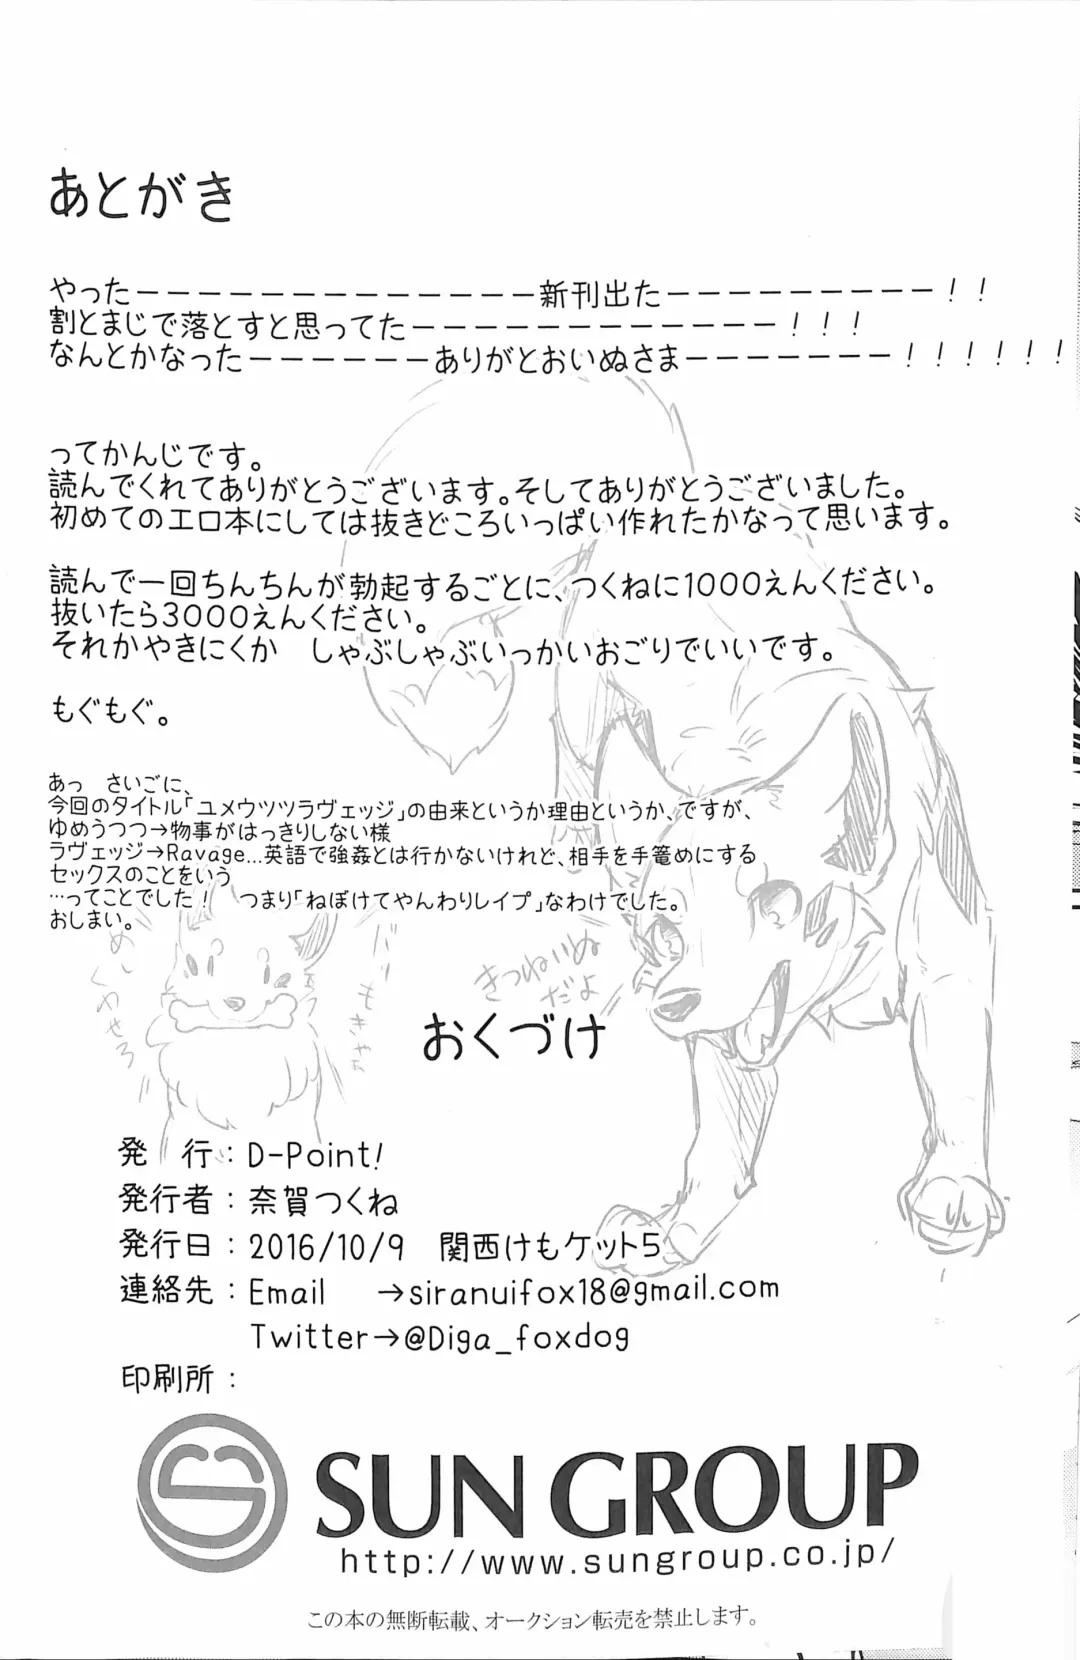 あとがき
やったーーーーーーーーーーーーー新刊出たーーーーーーーーー！！
割とまじで落とすと思ってたーーーーーーーーーーーー！！！
なんとかなったーーーーーーありがとおいぬさまーーーーーーー！！！！！！
ってかんじです。
読んでくれてありがとうございます。そしてありがとうございました。
初めてのエロ本にしては抜きどころいっぱい作れたかなって思います。
読んで一回ちんちんが勃起するごとに、つくねに1000えんください。
抜いたら3000えんください。
それかやきにくか　しゃぶしゃぶいっかいおごりでいいです。
もぐもぐ。
あっ　さいごに、
今回のタイトル「ユメウツツラヴェッジ」の由来というか理由というか、ですが、
ゆめうつつ→物事がはっきりしない様
ラヴェッジ→Ravage…英語で強姦とは行かないけれど、相手を手篭めにする
セックスのことをいう
…ってことでした！　つまり「ねぼけてやんわりレイプ」なわけでした。
おしまい。
めしくわせろ
きつねいぬ
だよ
おくづけ
発　行：D-Point!
発行者：奈賀つくね
発行日：2016/10/9　関西けもケット5
連絡先：Email　→siranuifox18@gmail.com
Twitter→@Diga_foxdog
印刷所：
SUN GROUP
http://www.sungroup.co.jp/
この本の無断転載、オークション転売を禁止します。